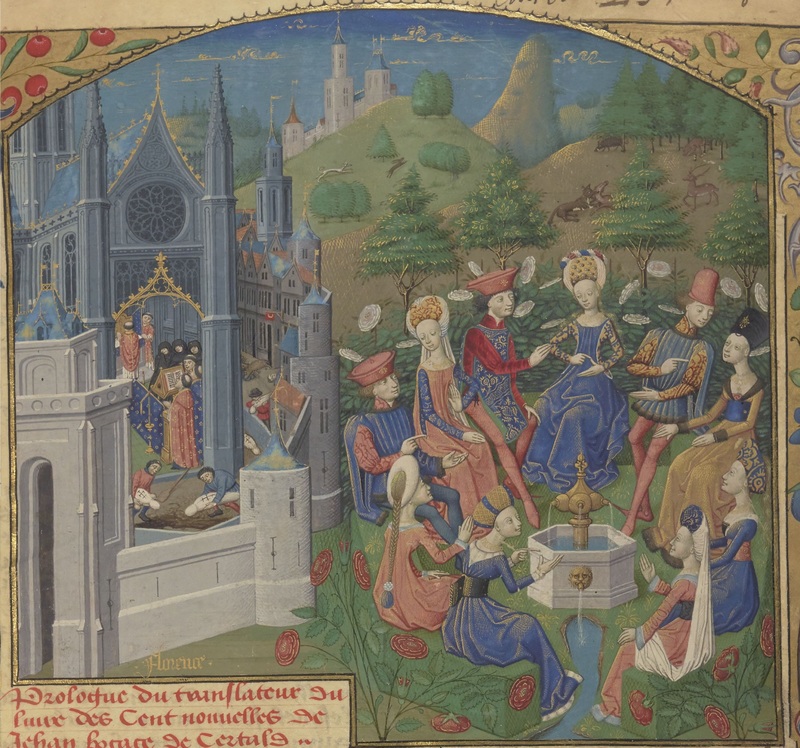 florence
Prologue du translateur du
liure des Cent nouuelles de
Jehan bocace de Certald